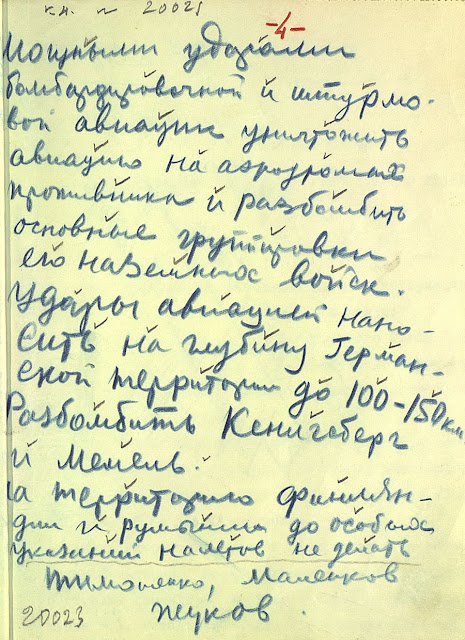 к.н. № 20023
-4-
мощными ударами
бомбардировочной и штурмо-
вой авиации уничтожить
авиацию на аэродромах
противника и разбомбить
основные группировки
его наземных войск.
Удары авиацией нано-
сить на глубину Герман-
ской территории до 100-150 км
Разбомбить Кенигсберг
и Мемель.
на территорию Финлян-
дии и Румынии до особых
указаний налетов не делать
Тимошенко, Маленков
Жуков.
20023